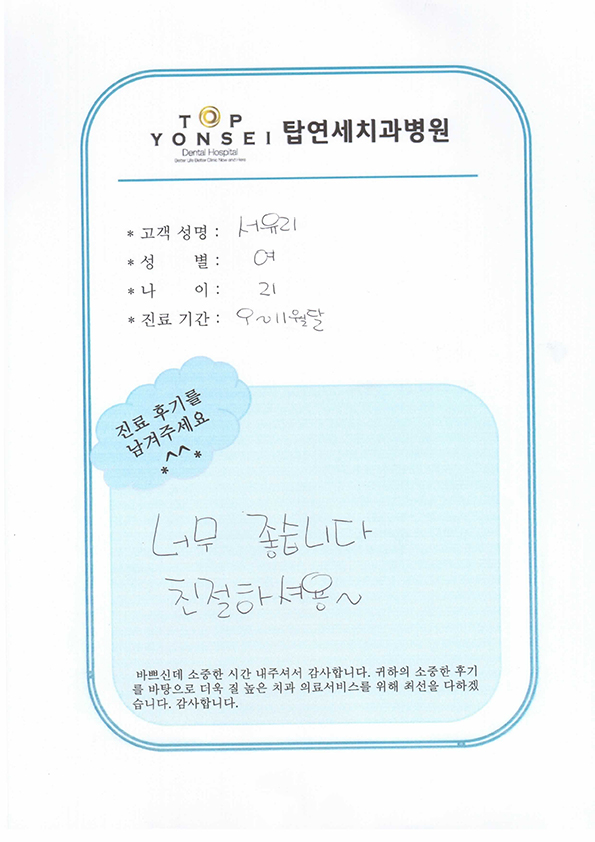 TOP
YONSEI 탑연세치과병원
Dental Hospital
Better Life Better Clinic Now and Here
* 고객 성명 : 서유리
* 성 별 : 여
* 나 이 : 21
* 진료 기간 : 9~11월달
진료 후기를
남겨주세요
*^^*
너무 좋습니다
친절하셔용~
바쁘신데 소중한 시간 내주셔서 감사합니다. 귀하의 소중한 후기
를 바탕으로 더욱 질 높은 치과 의료서비스를 위해 최선을 다하겠
습니다. 감사합니다.